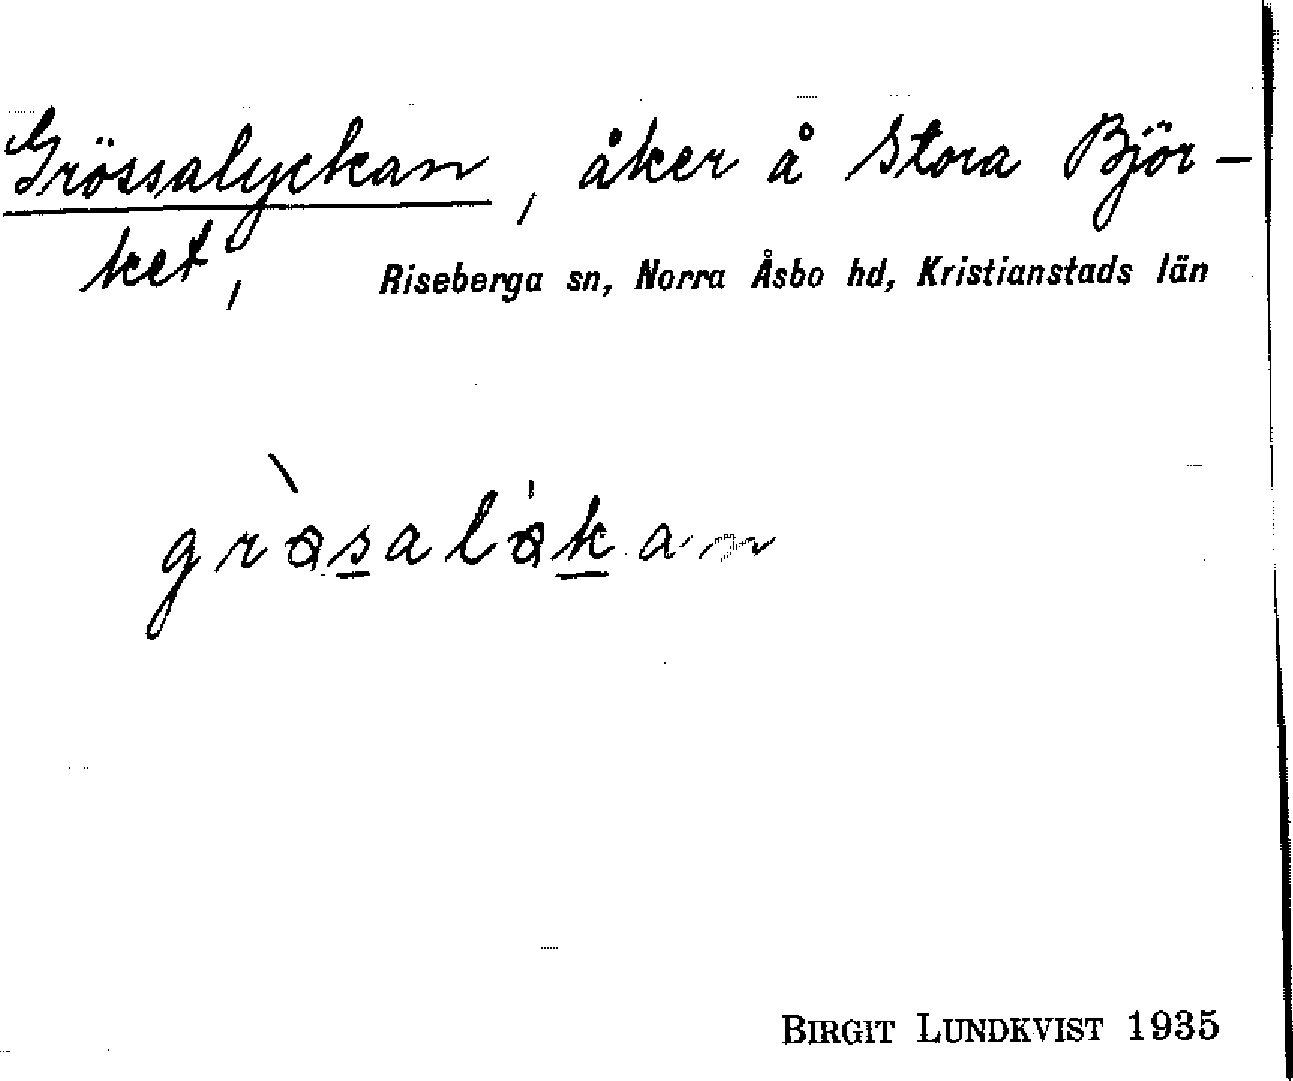 Grössalyckan, åker å Stora Björ-
ket,
Riseberga sn, Norra Åsbo hd, Kristianstads län
BIRGIT LUNDKVIST 1935